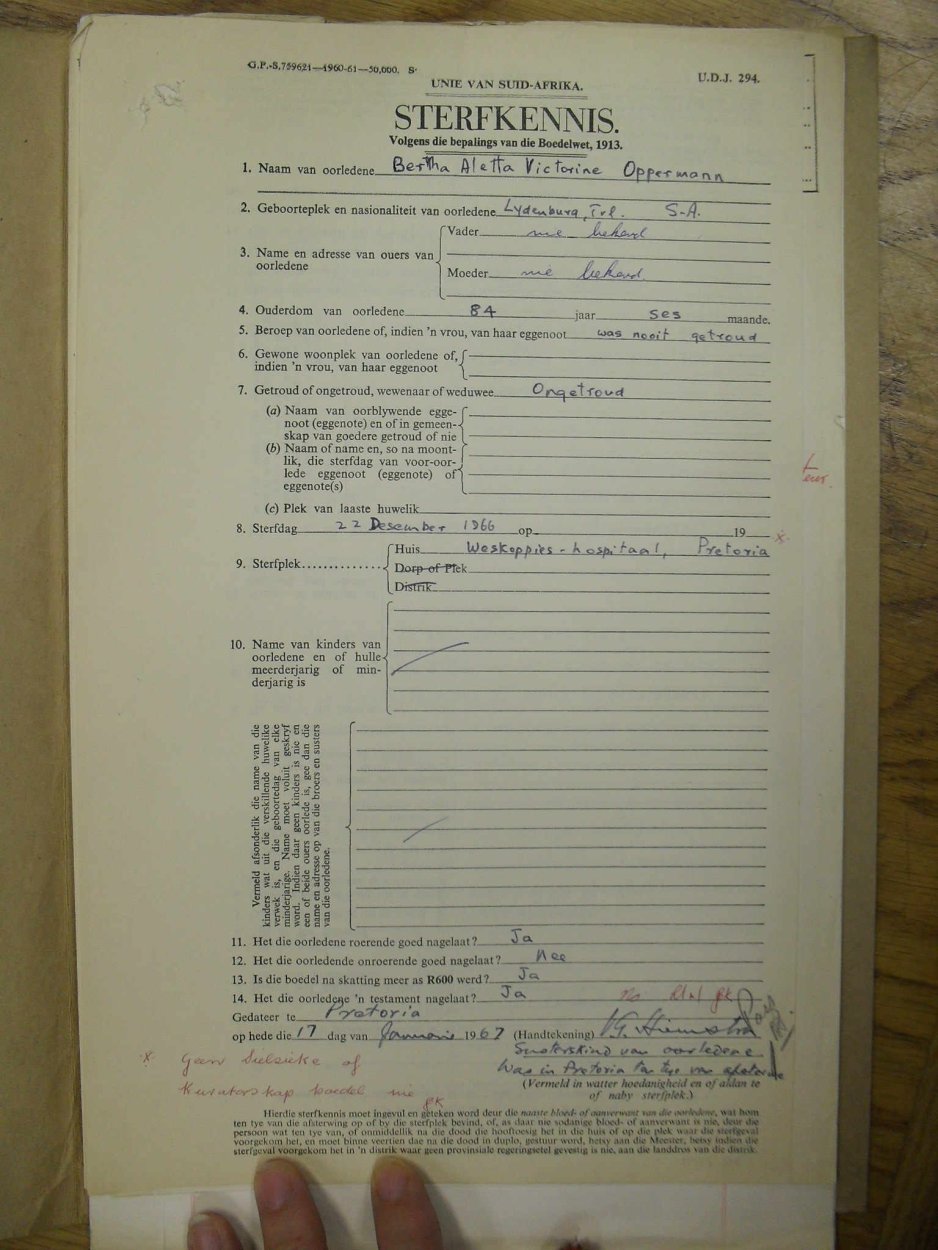 G.P.-S.759621—1960-61—50,000. S
U.D.J. 294.
UNIE VAN SUID-AFRIKA.
STERFKENNIS.
Volgens die bepalings van die Boedelwet, 1913.
1. Naam van oorledene Bertha Aletta Victorine Oppermann
2. Geboorteplek en nasionaliteit van oorledene Lydenburg, Tvl. S-A.
3. Name en adresse van ouers van oorledene
Vader nie bekend
Moeder nie bekend
4. Ouderdom van oorledene 84 jaar ses maande.
5. Beroep van oorledene of, indien 'n vrou, van haar eggenoot was nooit getroud
6. Gewone woonplek van oorledene of,
indien 'n vrou, van haar eggenoot
7. Getroud of ongetroud, wewenaar of weduwee Ongetroud
(a) Naam van oorblywende egge-
noot (eggenote) en of in gemeen-
skap van goedere getroud of nie
(b) Naam of name en, so na moont-
lik, die sterfdag van voor-oor-
lede eggenoot (eggenote) of
eggenote(s)
(c) Plek van laaste huwelik
8. Sterfdag 22 Desember 1966 op 19 x
9. Sterfplek
Huis Weskoppies-hospitaal, Pretoria
Dorp of Plek
Distrik
10. Name van kinders van
oorledene en of hulle
meerderjarig of min-
derjarig is
Vermeld afsonderlik die name van die
kinders wat uit die verskillende huwelike
verwek is, en die geboortedag van elke
minderjarige. Name moet voluit geskryf
word. Indien daar geen kinders is nie en
een of beide ouers oorlede is, gee dan die
name en adresse op van die broers en susters
van die oorledene.
11. Het die oorledene roerende goed nagelaat? Ja
12. Het die oorledende onroerende goed nagelaat? Nee
13. Is die boedel na skatting meer as R600 werd? Ja
14. Het die oorledene 'n testament nagelaat? Ja
Gedateer te Pretoria
op hede die 17 dag van Januarie 1967 (Handtekening) Hiemstra
Susterskind van oorledene
Was in Pretoria ten tye van
(Vermeld in watter hoedanigheid en of aldan te
of naby sterfplek.)
x Geen sielsieke of
Kuratorskap boedel nie
Hierdie sterfkennis moet ingevul en geteken word deur die naaste bloed- of aanverwant van die oorledene, wat hom
ten tye van die afsterwing op of by die sterfplek bevind, of, as daar nie sodanige bloed- of aanverwant is nie, deur die
persoon wat ten tye van, of onmiddellik na die dood die hooftoesig het in die huis of op die plek waar die sterfgeval
voorgekom het, en moet binne veertien dae na die dood in duplo, gestuur word, hetsy aan die Meester, hetsy indien die
sterfgeval voorgekom het in 'n distrik waar geen provinsiale regeringsetel gevestig is nie, aan die landdros van die distrik.